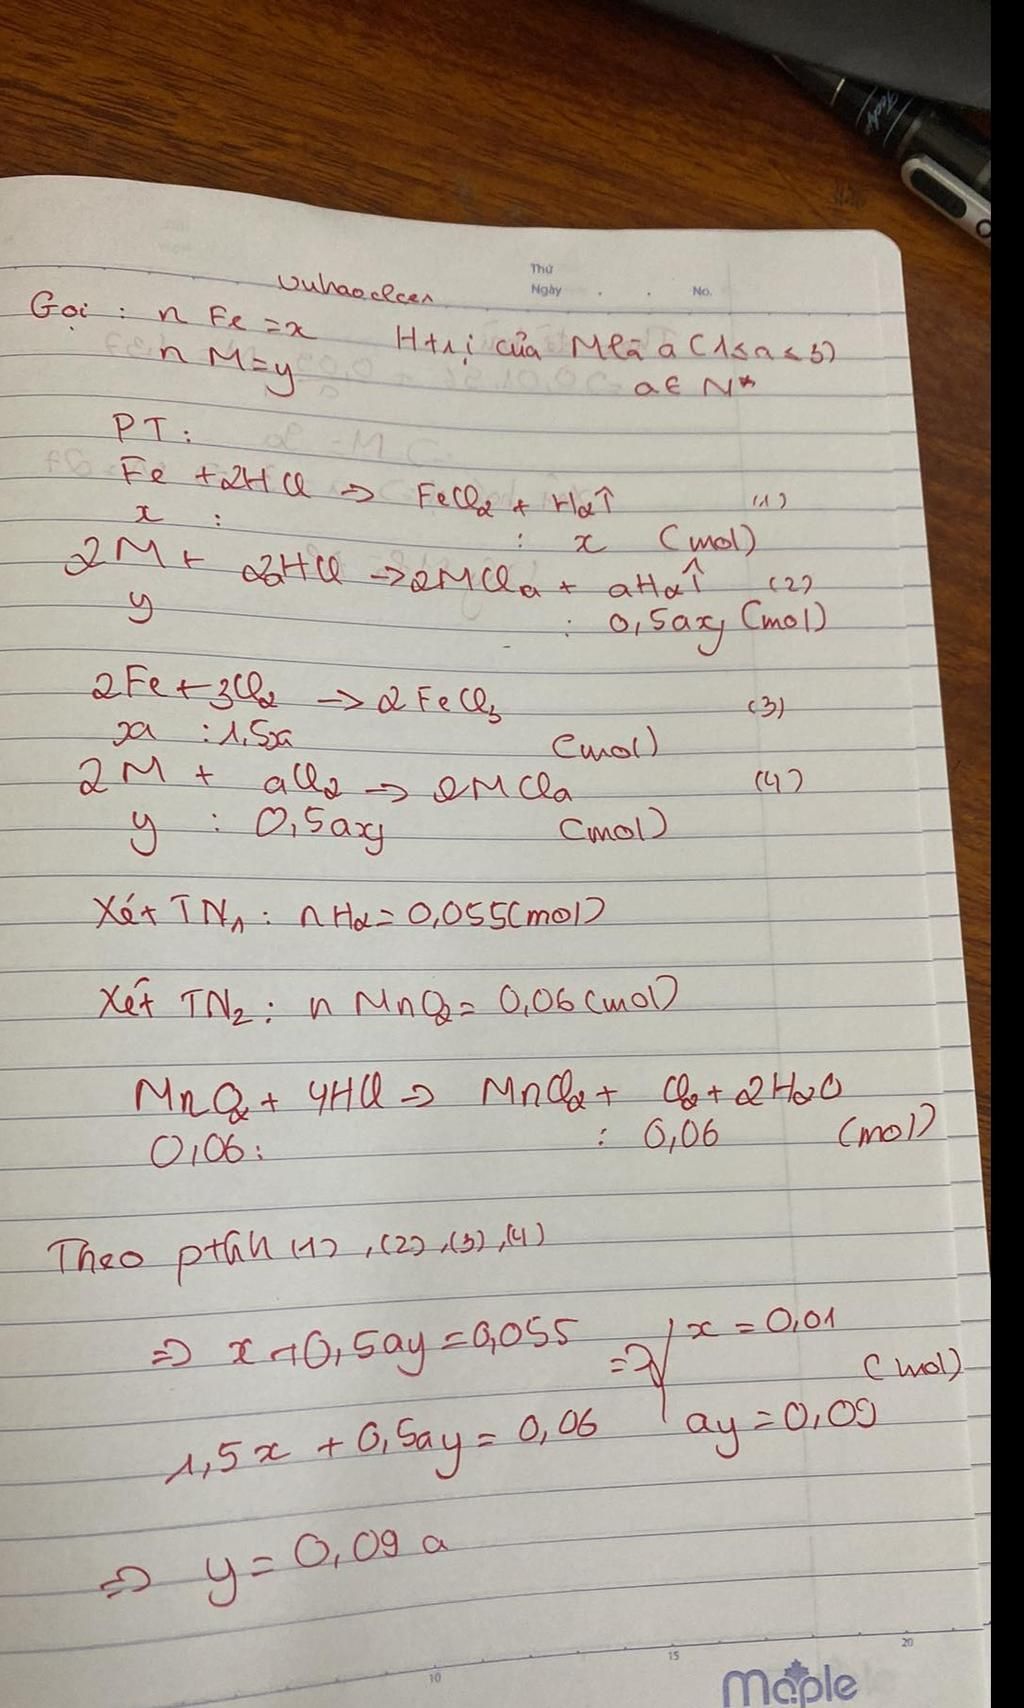 Thứ
Ngày . . No.
vuhaoclcer
Gọi : n Fe = x H+rị của M là a (1≤a≤3)
n M = y a ∈ N*
PT:
Fe + 2HCl => FeCl2 + H2↑ (1)
x : : x (mol)
2M + 2aHCl -> 2MCla + aH2↑ (2)
y : 0,5axy (mol)
2Fe + 3Cl2 -> 2FeCl3 (3)
xa : 1,5xa (mol)
2M + aCl2 -> 2MCla (4)
y : 0,5axy (mol)
Xét TN1 : nH2 = 0,055 (mol)
Xét TN2 : n MnO2 = 0,06 (mol)
MnO2 + 4HCl => MnCl2 + Cl2 + 2H2O
0,06 : : 0,06 (mol)
Theo pthh (1), (2), (3), (4)
=> x + 0,5ay = 0,055 => { x = 0,01
1,5x + 0,5ay = 0,06 ay = 0,09 (mol)
=> y = 0,09 a
10 15 20
Maple